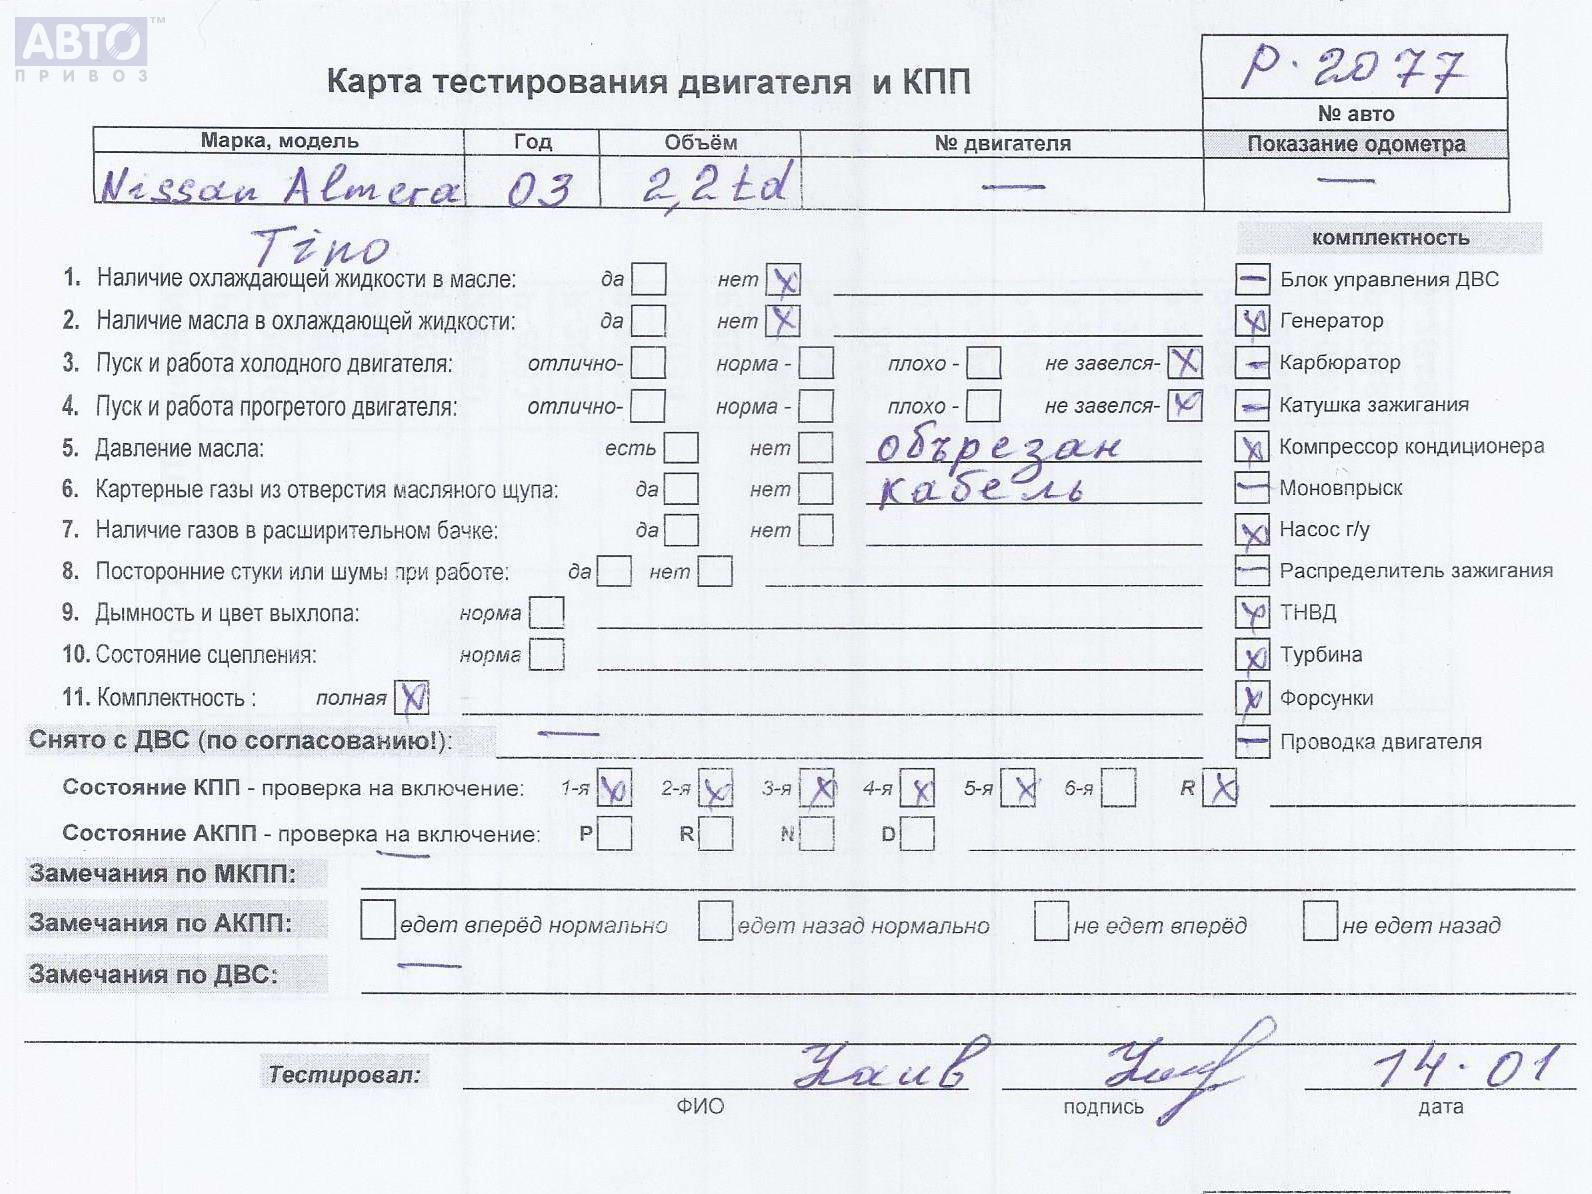 АВТО ™
ПРИВОЗ
Р. 2077
Карта тестирования двигателя и КПП
№ авто
Марка, модель Год Объём № двигателя Показание одометра
Nissan Almera 03 2,2 td — —
Tino
комплектность
1. Наличие охлаждающей жидкости в масле: да нет X
— Блок управления ДВС
2. Наличие масла в охлаждающей жидкости: да нет X
X Генератор
3. Пуск и работа холодного двигателя: отлично- норма - плохо - не завелся- X
— Карбюратор
4. Пуск и работа прогретого двигателя: отлично- норма - плохо - не завелся- X
— Катушка зажигания
5. Давление масла: есть нет обърезан
X Компрессор кондиционера
6. Картерные газы из отверстия масляного щупа: да нет кабель
— Моновпрыск
7. Наличие газов в расширительном бачке: да нет
X Насос г/у
8. Посторонние стуки или шумы при работе: да нет
— Распределитель зажигания
9. Дымность и цвет выхлопа: норма
X ТНВД
10. Состояние сцепления: норма
X Турбина
11. Комплектность : полная X
X Форсунки
Снято с ДВС (по согласованию!): —
— Проводка двигателя
Состояние КПП - проверка на включение: 1-я X 2-я X 3-я X 4-я X 5-я X 6-я R X
Состояние АКПП - проверка на включение: P R N D
Замечания по МКПП: —
Замечания по АКПП: едет вперёд нормально едет назад нормально не едет вперёд не едет назад
Замечания по ДВС: —
Тестировал: 14.01
ФИО подпись дата